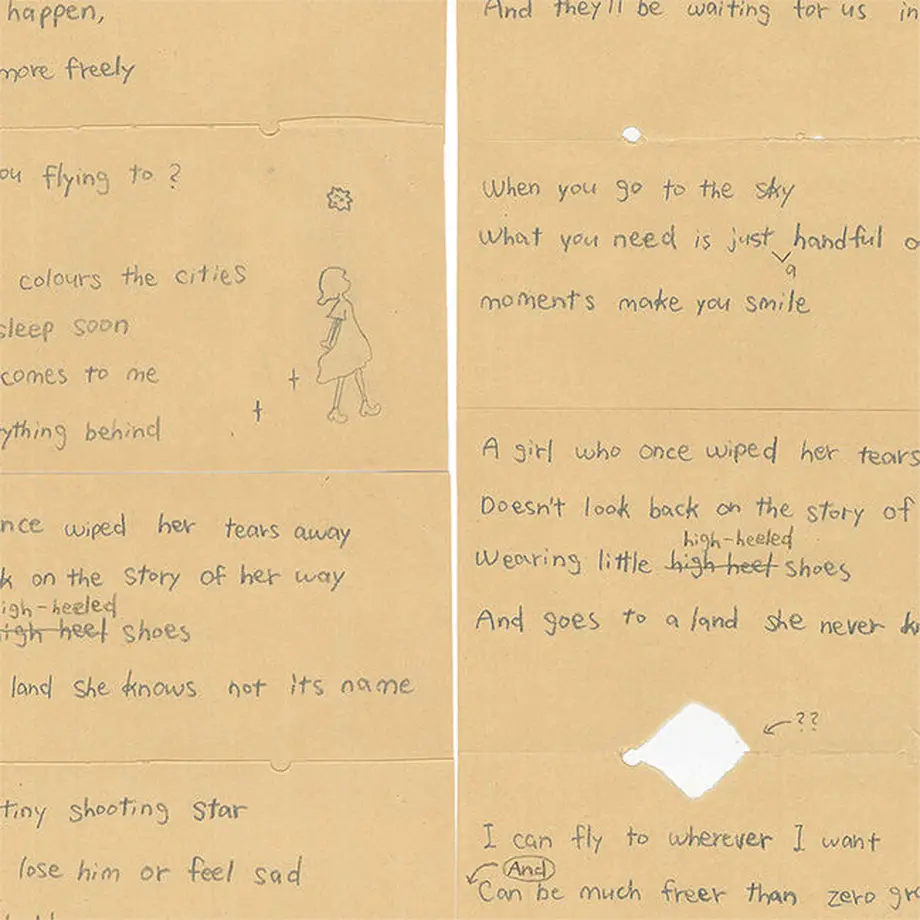 happen,
more freely
ou flying to ?
colours the cities
sleep soon
comes to me
ything behind
nce wiped her tears away
k on the story of her way
igh-heeled
igh heel shoes
land she knows not its name
tiny shooting star
lose him or feel sad
And they'll be waiting for us in
When you go to the sky
What you need is just handful o
a
moments make you smile
A girl who once wiped her tears
Doesn't look back on the story of
high-heeled
Wearing little high heel shoes
And goes to a land she never kn
??
I can fly to wherever I want
And
Can be much freer than zero gra